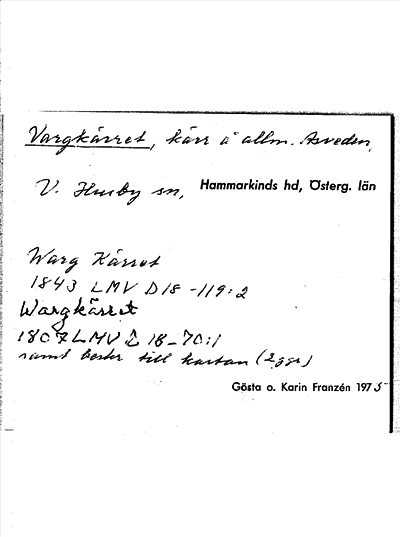 Vargkärret, kärr å allm. Asveden,
V. Husby sn, Hammarkinds hd, Österg. län
Warg Kärret
1843 LMV D18-119:2
Wargkärret
1807 LMV D18-70:1
samt beskr till kartan (2 ggr)
Gösta o. Karin Franzén 1975